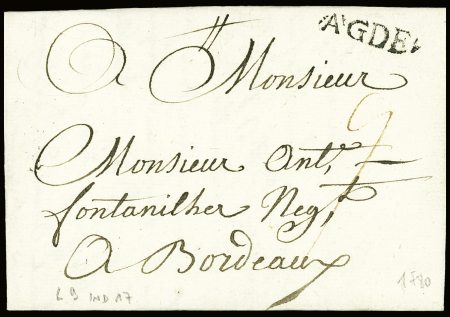 AGDE
A Monsieur
Monsieur Ant.e
fontanilher Neg.t
A Bordeaux
L 9 IND 17
1780